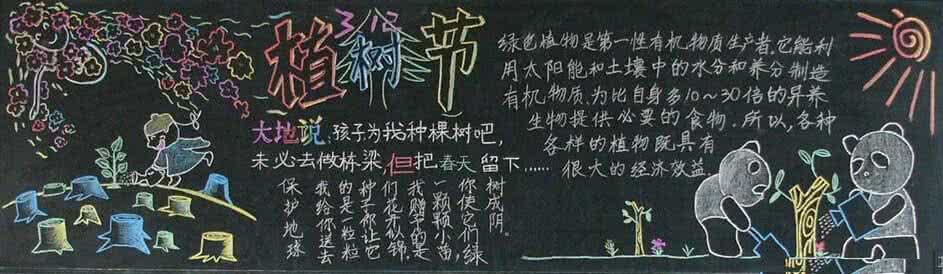 3.12
植树节
大地说:孩子为我种棵树吧,
未必去做栋梁,但把春天留下……
保护地球
我给你送去
的是一粒粒
种子都让它
们花开似锦,
我赠予的是
一颗颗小苗,
你使它们绿
树成阴。
绿色植物是第一性有机物质生产者,它能利
用太阳能和土壤中的水分和养分制造
有机物质,为比自身多10~30倍的异养
生物提供必要的食物.所以,各种
各样的植物既具有
很大的经济效益.